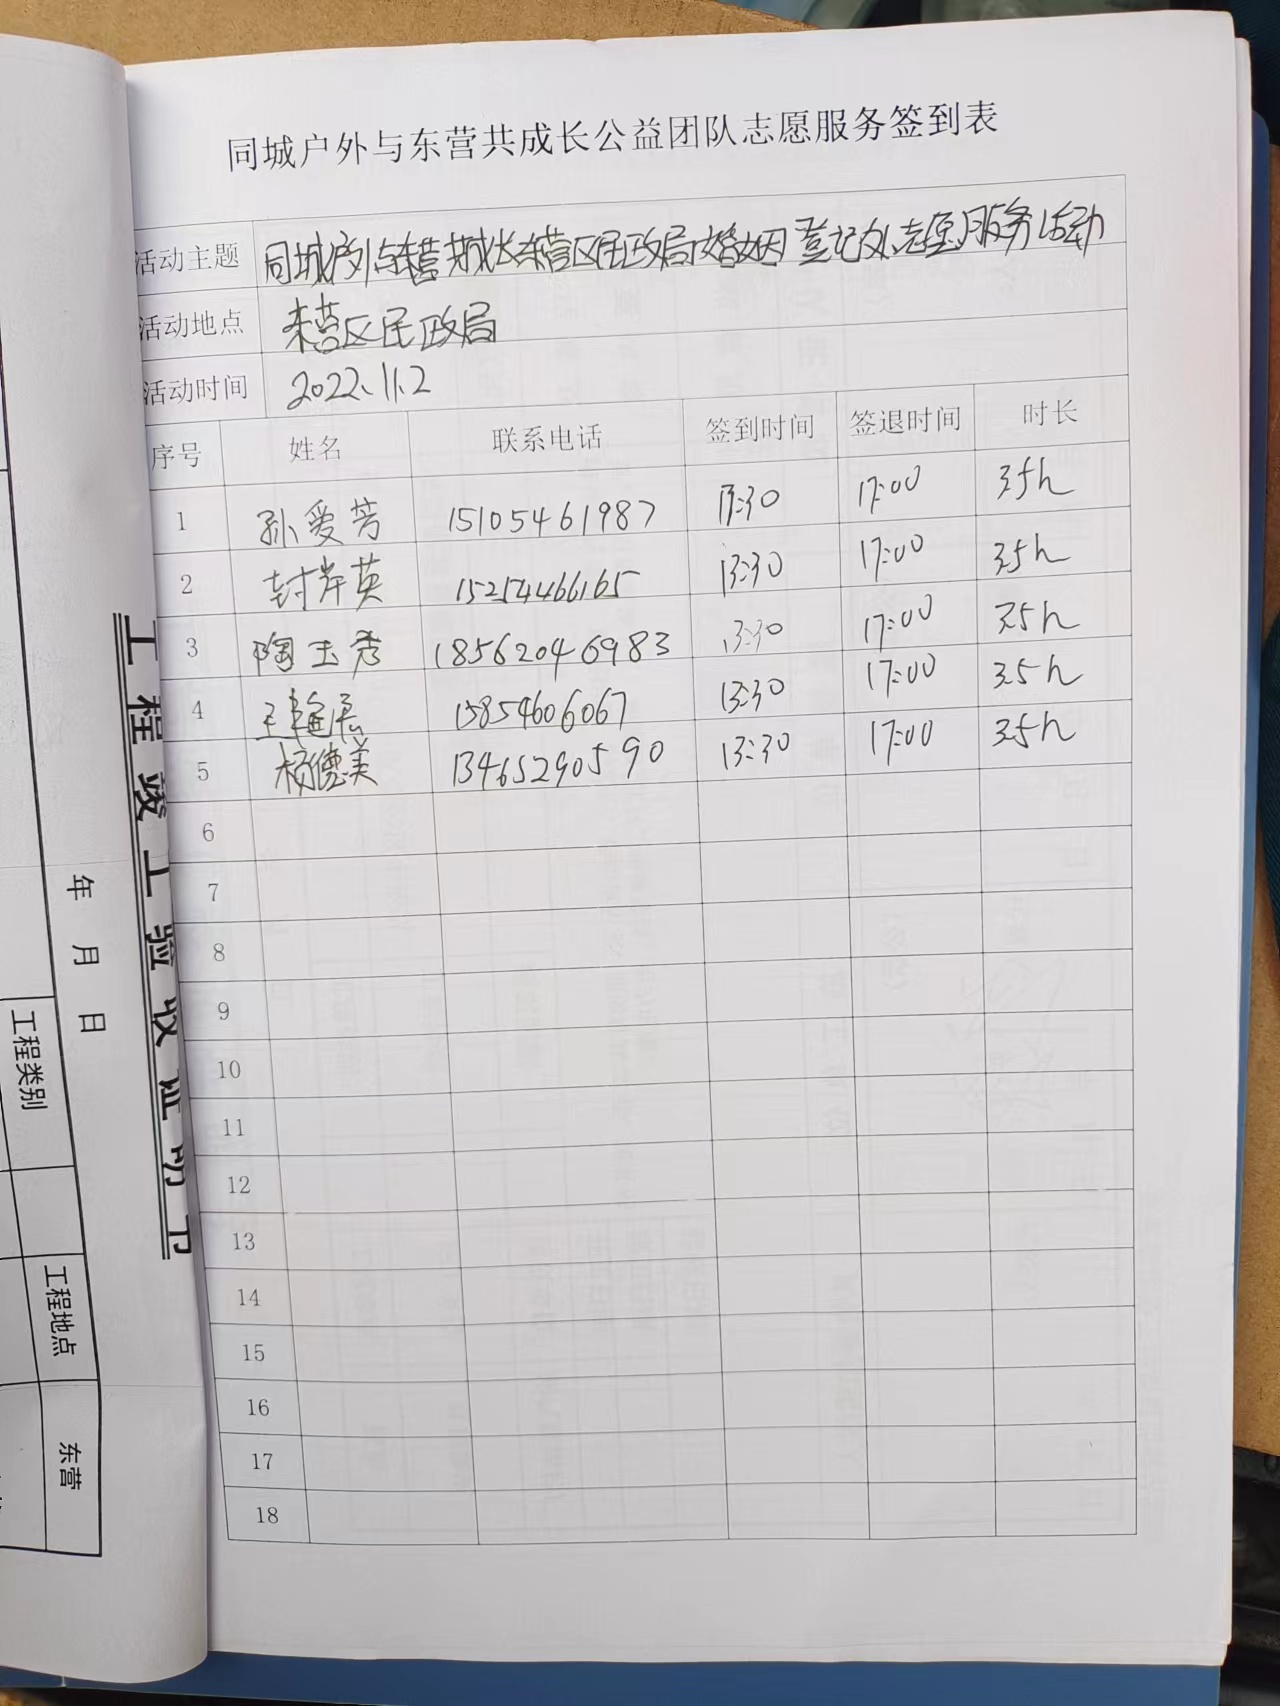 同城户外与东营共成长公益团队志愿服务签到表
活动主题 同城户外与东营共成长东营区民政局婚姻登记处志愿服务活动
活动地点 东营区民政局
活动时间 2022.11.2
序号 姓名 联系电话 签到时间 签退时间 时长
1 孙爱芳 15105461987 13:30 17:00 3.5h
2 封芹英 15254466165 13:30 17:00 3.5h
3 陶玉秀 18562046983 13:30 17:00 3.5h
4 王 15854606067 13:30 17:00 3.5h
5 杨德美 13465290590 13:30 17:00 3.5h
6
7
8
9
10
11
12
13
14
15
16
17
18
工程竣工验收证明
年 月 日
工程类别
工程地点
东营